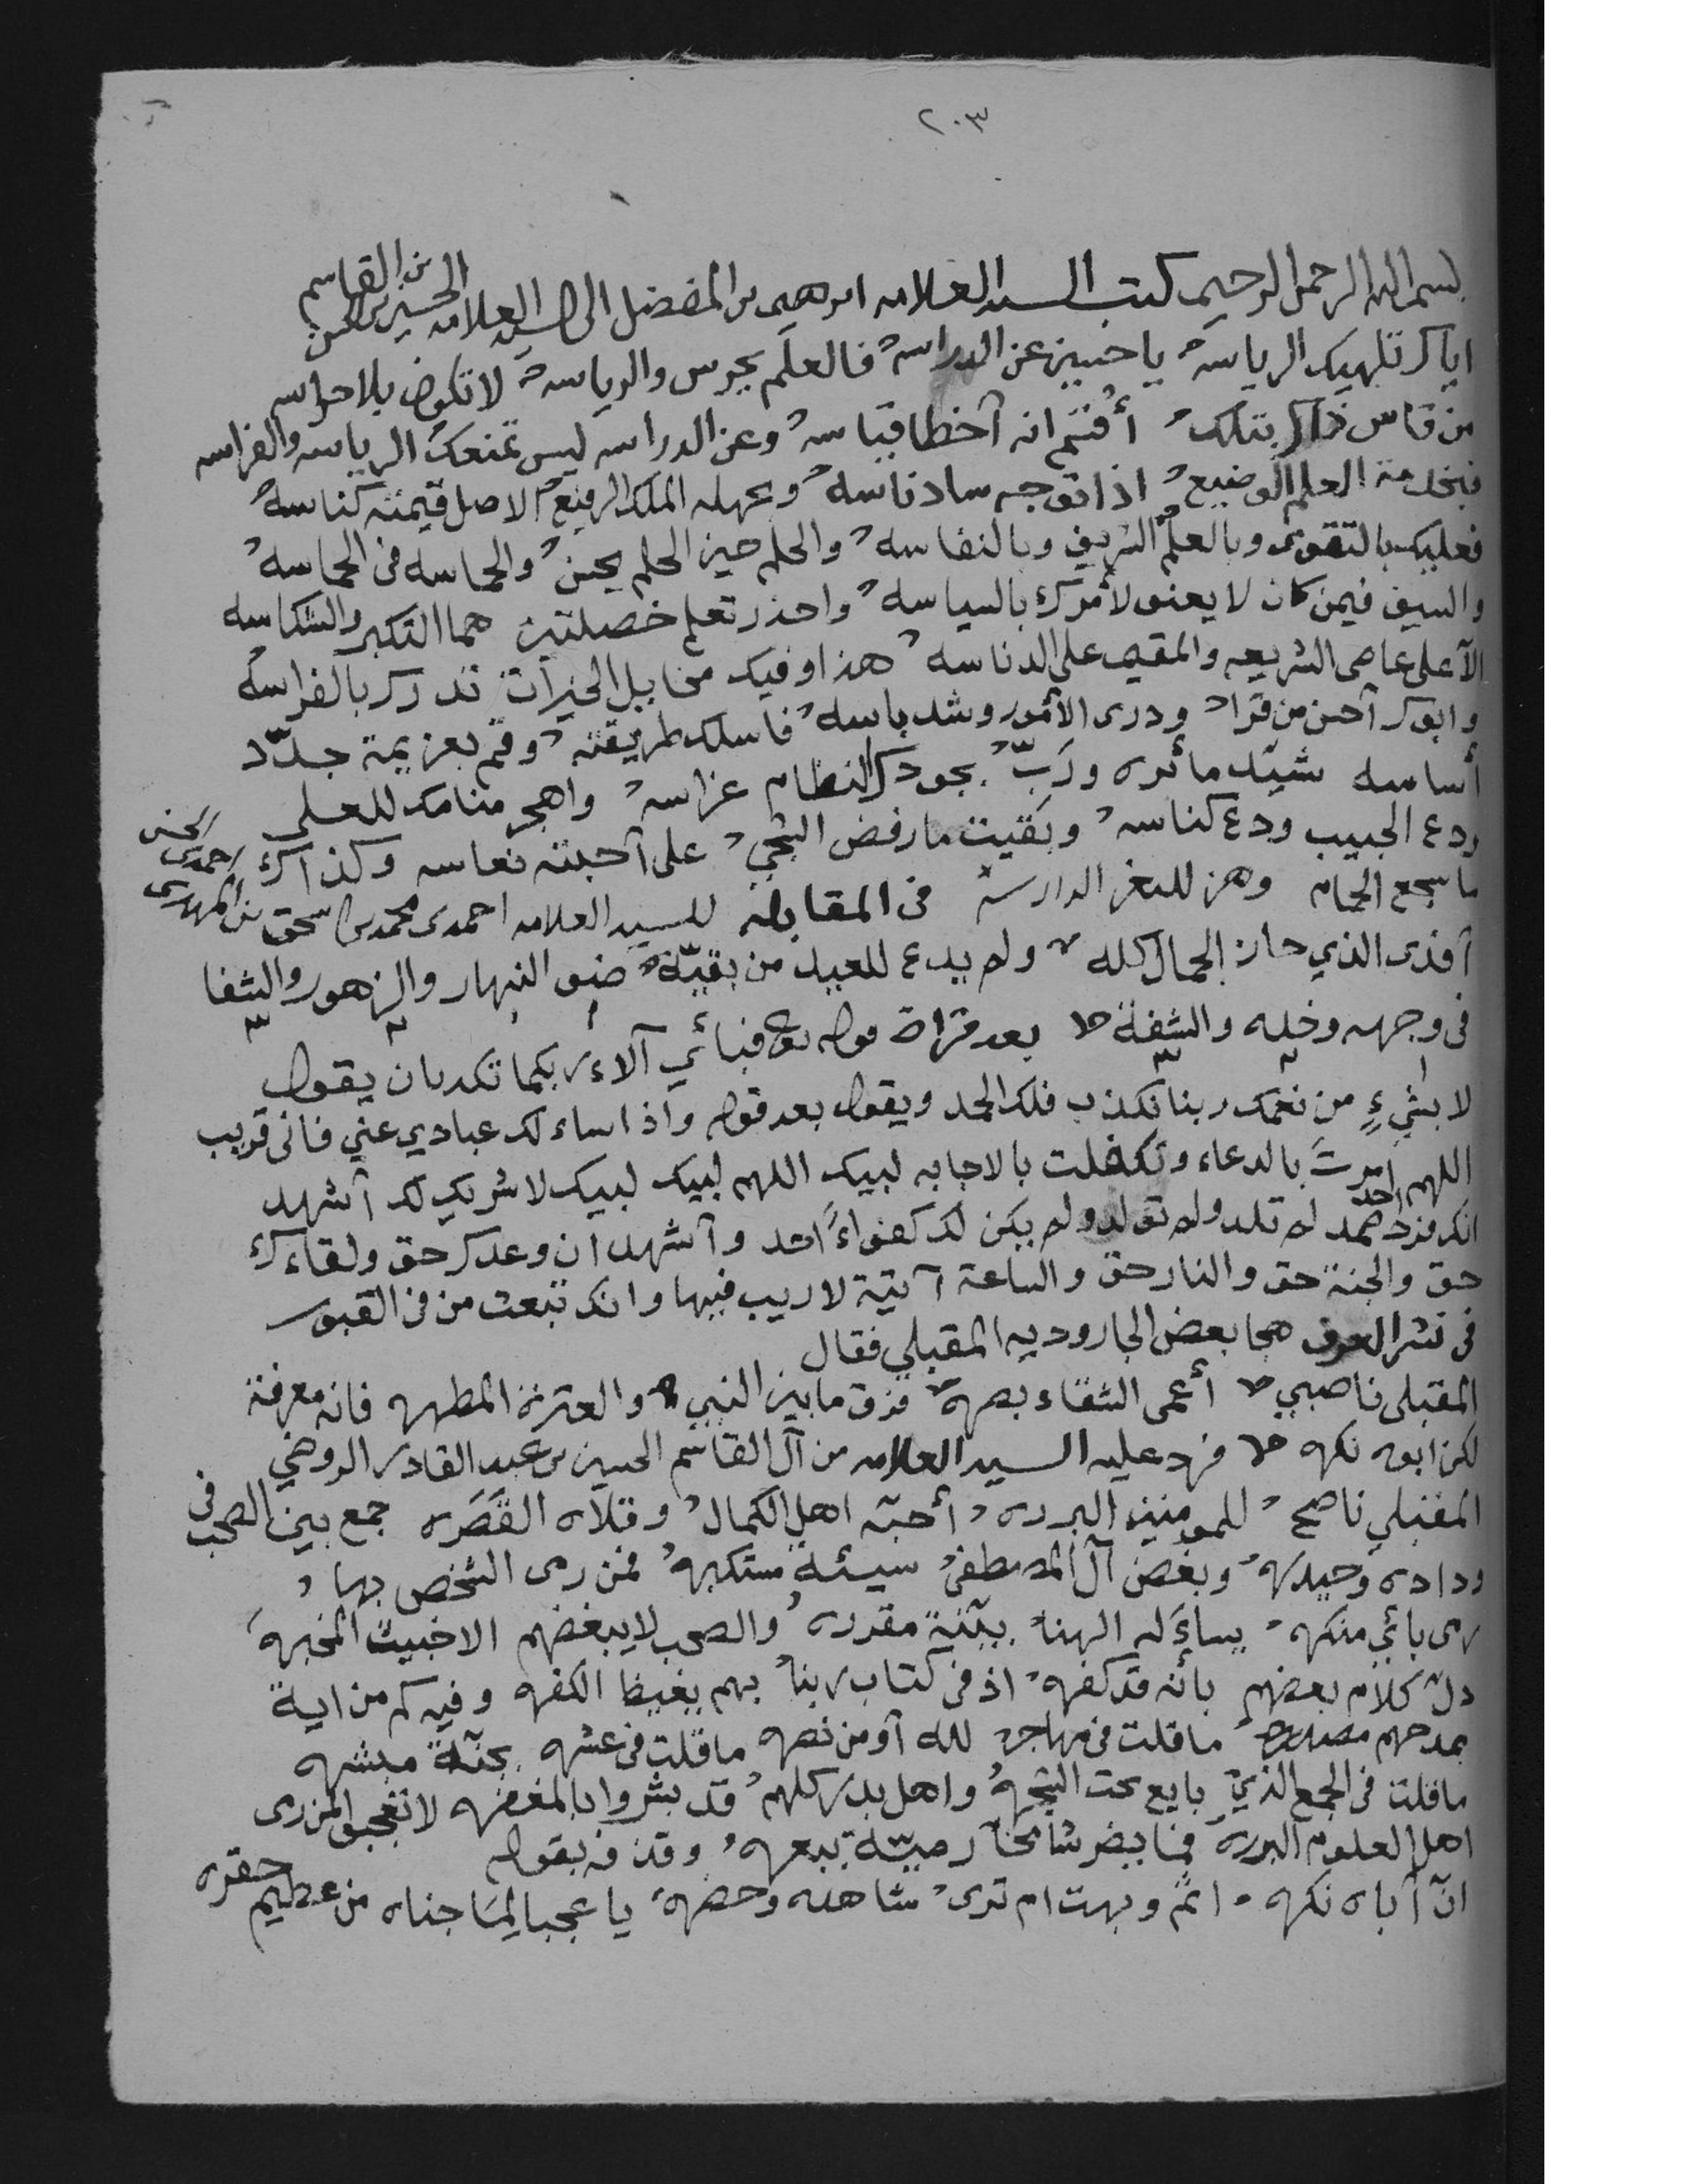 ٢٠٣
بسم الله الرحمن الرحيم كتب السيد العلامه ابرهيم بن المفضل الى السيد العلامه الحسين بن الحسن بن القاسم
اياك تلهيك الرياسه يا حسين عن الدراسه فالعلم يحرس والرياسة لا تكون بلا حراسه
من قاس ذاك بتلك أقسم انه أخطا قياسه وعن الدراسه ليس تمنعك الرياسه والفراسه
فبخدمة العلم الوضيع اذا توجه ساد ناسه وبجهله الملك الرفيع الاصل قيمته كناسه
فعليك بالتقوى وبالعلم الشريف وبالنفاسه والحلم حين الحلم يحسن والحماسه في الحماسه
والسيف فيمن كان لا يعنو لأمرك بالسياسه واحذر تعلم خصلتين هما التكبر والشكاسه
الآ على عاصى الشريعه والمقيم على الدناسه هذا وفيك مخايل الخيرات تدرك بالفراسه
وابوك أحسن من قرا ودرى الأمور وشد باسه فاسلك طريقته وقم بعزيمة جدّد
أساسه شيّد مأثره ورَبّ بجودك النظام غراسه واهجر منامك للعلى
ودع الحبيب ودع كناسه وبقيت ما رفض الشجي على أحبته نعاسه وكذاك
ما سجع الحمام وهز للغز الدارسة في المقابله للسيد العلامه احمد بن محمد بن اسحق بن المهدي احمد بن الحسن
أفدى الذي حاز الجمال كله ولم يدع للعبيد من بقيّة ضو النهار والزهور والشفا
في وجهه وخده والشفة بعد قراة قوله تعالى فبأي آلاء ربكما تكذبان يقول
لا بشيءٍ من نعمك ربنا نكذب فلك الحمد ويقول بعد قوله واذا ساءلك عبادي عني فاني قريب
اللهم امرتَ بالدعاء وتكفلت بالاجابه لبيك اللهم لبيك لبيك لا شريك لك أشهد
انك فرد احد صمد لم تلد ولم تولد ولم يكن لك كفواً احد وأشهد ان وعدك حق ولقاءك
حق والجنة حق والنار حق والساعة آتية لا ريب فيها وانك تبعث من في القبور
في نشر العرف هجا بعض الجاروديه المقبلي فقال
المقبلى ناصبي أعمى الشقاء بصره فرق ما بين النبي والعترة المطهره فانه معرفة
لكن ابوه نكره فرد عليه السيد العلامه من آل القاسم الحسين بن عبد القادر الروضي
المقبلي ناصح للمومنين البرره أحبّه اهل الكمال وقلاه القَصَره جمع بين الصحب في
وداده وحيدره وبغض آل المصطفى سيئة مستكبره فمن رمى الشخص بها
رمى بأي منكره يساءَله الهنا بيّنة مقرره والصحب لا يبغضهم الا خبيث المخبره
دلّ كلام بعضهم بأنه قد كفره اذ في كتاب ربنا بهم يغيظ الكفره وفيه كم من اية
بمدحهم مصدره ما قلت في مهاجر لله أو من نصره ما قلت في عشره بجنّة مبشره
ما قلت في الجمع الذي بايع تحت الشجره واهل بدر كلهم قد بشروا بالمغفره لا تعجبوا لمن رمى
اهل العلوم البرره فما يضر شامخا رميّة ببعره وقذفه بقوله
انّ أباه نكره اثم وبهت ام ترى شاهده وحضره يا عجبا لما جناه من عظيم حقره